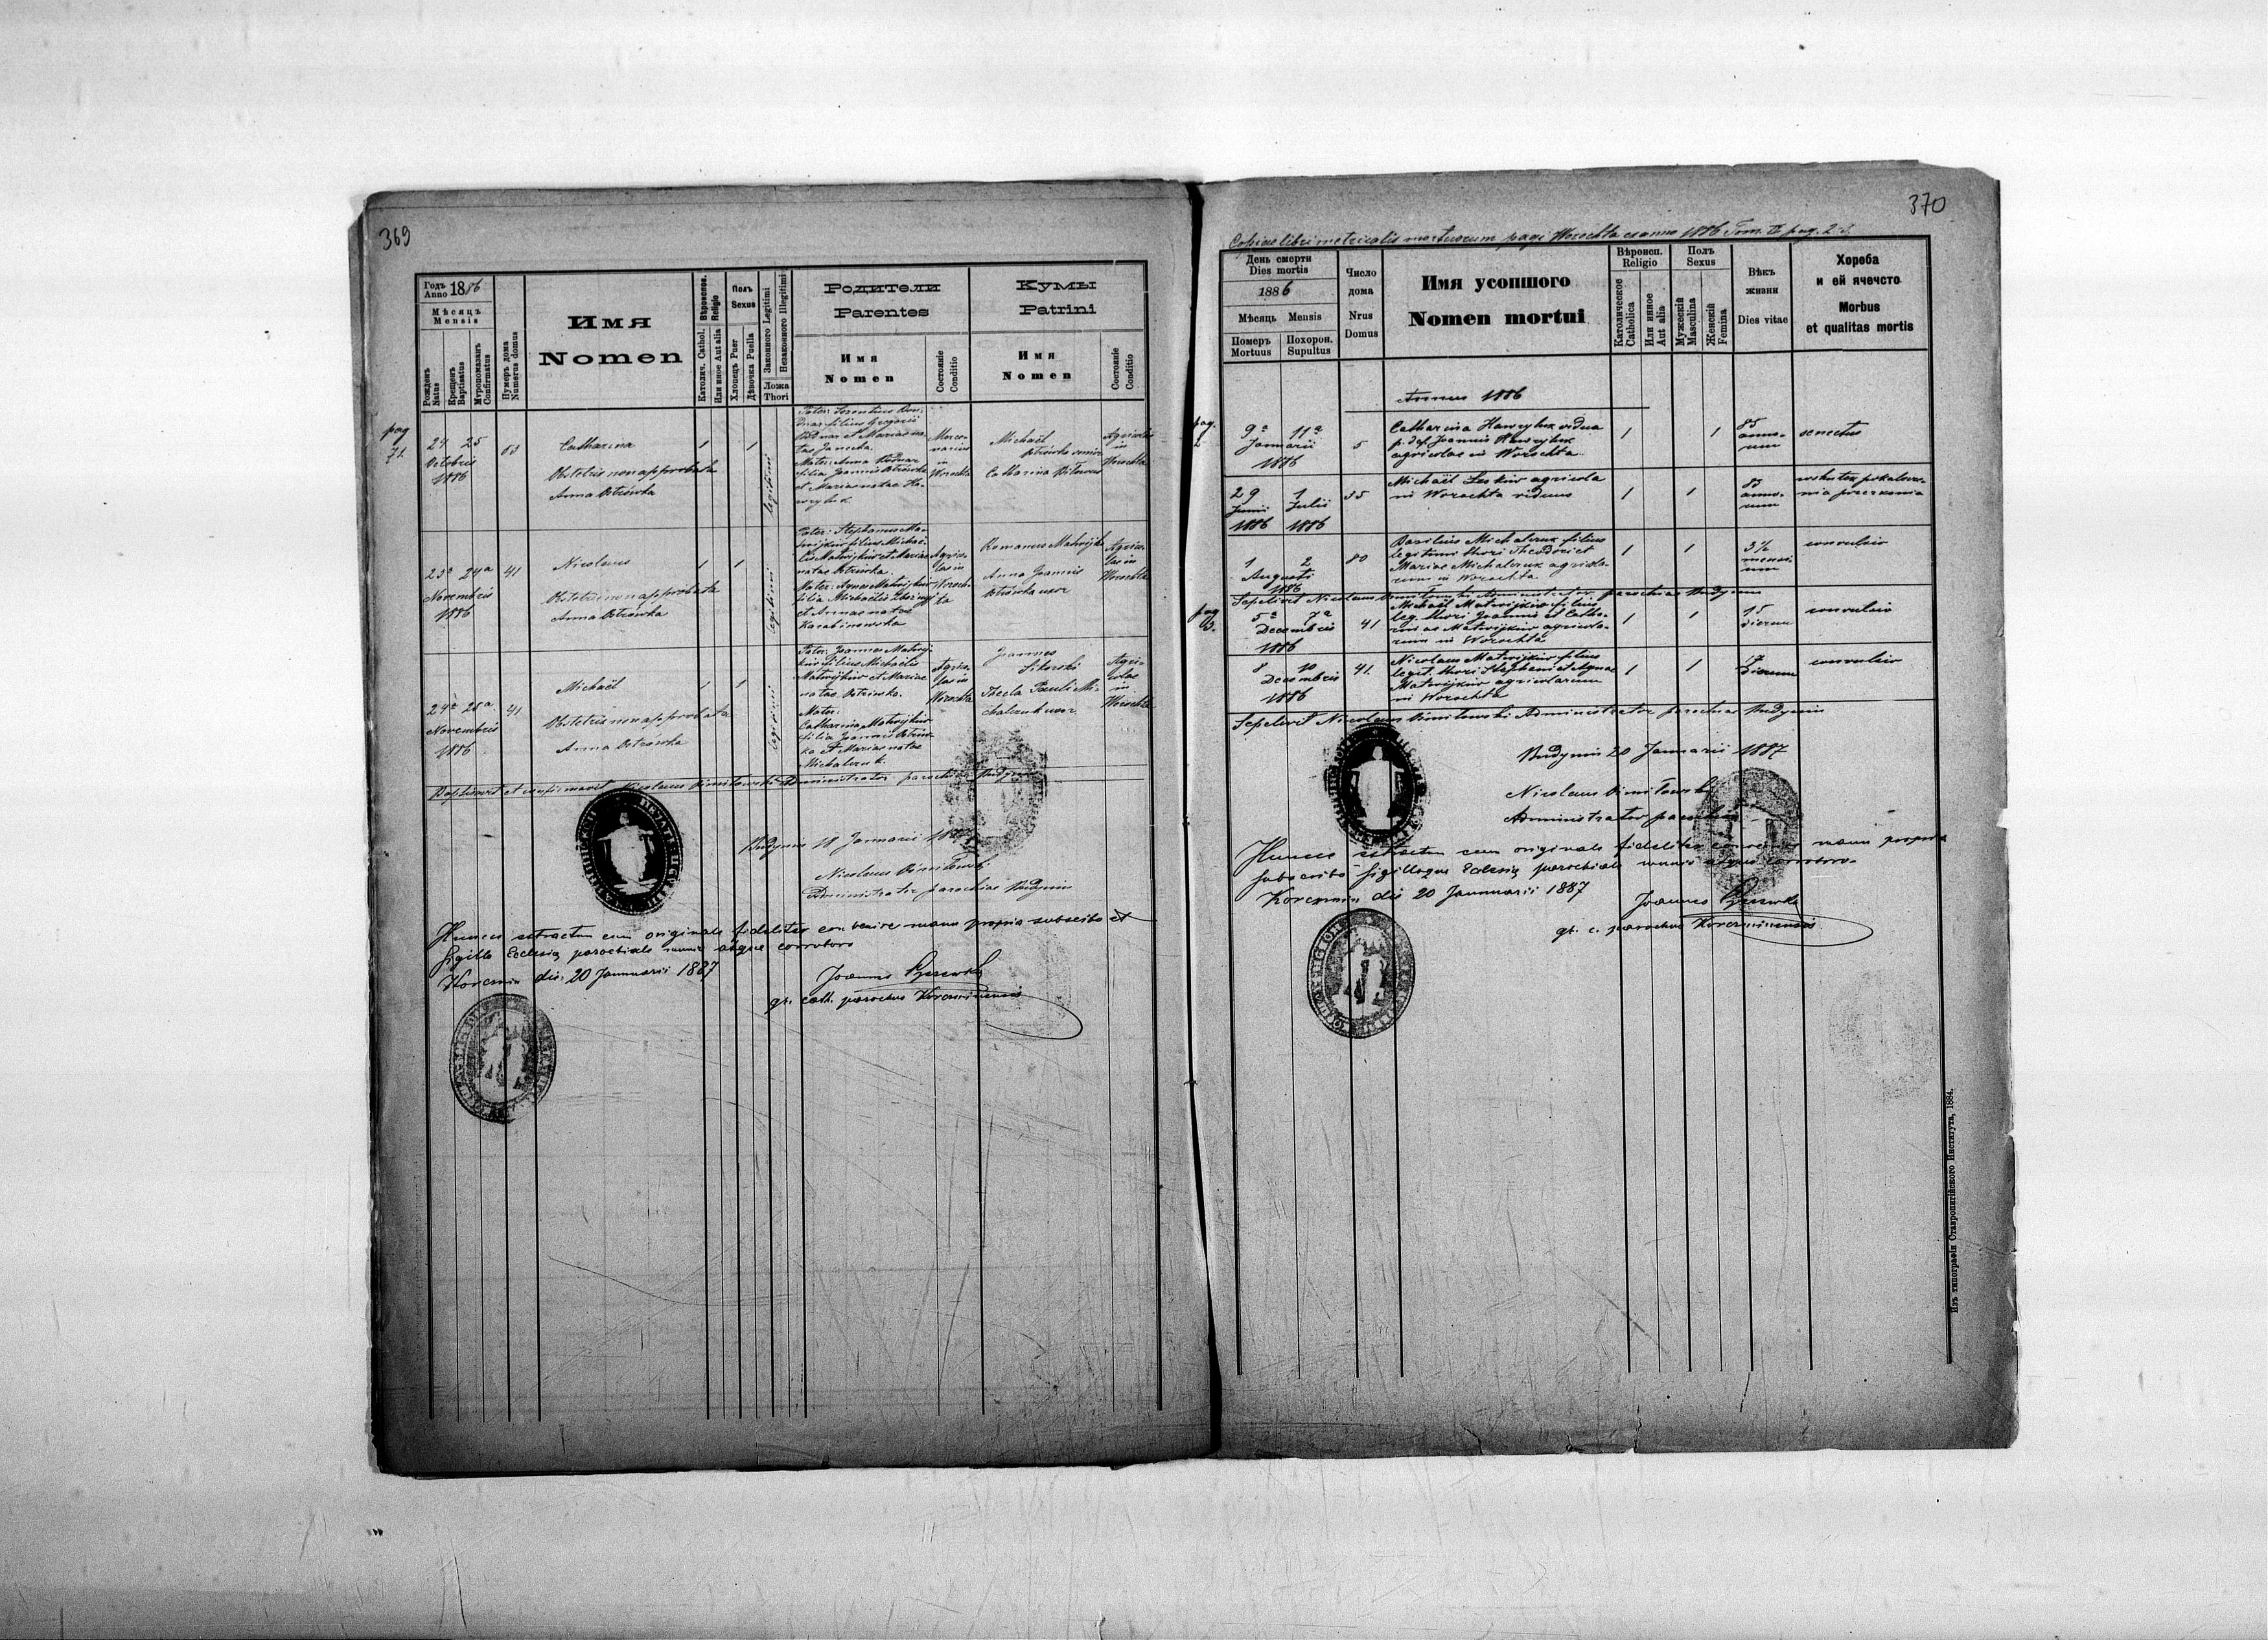 369
Годъ Anno 1886
Мѣсяцъ Mensis
Рожденъ Natus
Крещенъ Baptisatus
Мѵропомазанъ Confirmatus
Нумеръ дома Numerus domus
Имя
Nomen
Вѣроиспов. Religio
Католич. Cathol.
Или иное Aut alia
Полъ Sexus
Хлопецъ Puer
Дѣвочка Puella
Законного Legitimi
Незаконного Illegitimi
Ложа Thori
Родители
Parentes
Имя
Nomen
Состояніе Conditio
Кумы
Patrini
Имя
Nomen
Состояніе Conditio
pag
24 25
Octobris
1886
63
Catharina
Obstetrix non approbata
Anna Ostrowka
1
1
legitimi
natas Janecka.
Mater: Anna Bodnar
filia Joannis Ostrówka
et Marias natae Ha-
wryluk
Merce-
narius
in
Worochta
Michaël
Catharina
Agricolas
in
Worochta
23a 24a
Novembris
1886
41
Nicolaus
Obstetrix non approbata
Anna Ostrowka
1
1
legitimi
Pater: Stephanus Ma-
twijkiw filius Michaë-
lis Matwijkiw et Mariae
natae Ostrówka.
Mater: Agnes Matwijkiw
filia Michaëlis
et Annas natae
Karabinowska
Agrico-
las in
Woroch-
ta
Romanus Matwijkiw
Anna Joannis
Ostrówka uxor
Agrico-
las in
Worochta
24a 25a
Novembris
1886
41
Michaël
Obstetrix non approbata
Anna Ostrówka
1
1
legitimi
Pater: Joannes Matwij-
kiw filius Michaëlis
Matwijkiw et Mariae
natae Ostrówka.
Mater:
Catharina Matwijkiw
filia Joannis Ostrów-
ka et Marias natae
Michalczuk.
Agrico-
las in
Worochta
Joannes
Sikorski
Thecla Pauli Mi-
chalczuk uxor
Agri-
colae
in
Worochta
Baptisavit et confirmavit Nicolaus Dimitowski Administrator parochiae Budynin
Budynin 18 Januarii 1887
Nicolaus Dimitowski
Administrator parochiae Budynin
Hunce extractum cum originale fideliter convenire manu propria subscribo et
sigillo Ecclesiae parochialis munio atque corroboro
Korczmin die 20 Jannuarii 1887
Joannes
gr. cath. parochus Korczminensis
370
Copiae libri metricalis mortuorum pagi Worochta ex anno 1886 Tom. II pag. 2.3.
День смерти
Dies mortis
1886
Мѣсяць Mensis
Померъ Mortuus
Похорон. Sepultus
Число дома
Nrus Domus
Имя усопшого
Nomen mortui
Вѣроисп.
Religio
Католическое Catholica
Или инное Aut alia
Полъ
Sexus
Мужескій Masculina
Женскій Femina
Вѣкъ жизни
Dies vitae
Хороба
и ей ячечсто
Morbus
et qualitas mortis
Annus 1886
pag.
2
9a 11a
Januarii
1886
5
Catharina Hawryluk vidua
p. def. Joannis Hawryluk
agricolae in Worochta
1
1
85
anno-
rum
senectus
29 1
Junii Julii
1886 1886
35
Michaël Leskiw agricola
in Worochta viduus
1
1
83
anno-
rum
1 2
Augusti
1886
80
Basilius Michalczuk filius
legitimi thori Theodori et
Mariae Michalczuk agricola-
rum in Worochta
1
1
3 ½
mensi-
um
convulsio
Sepelivit Nicolaus Dimitowski Administrator parochiae Budynin
pag
3.
5a 7a
Decembris
1886
41
Michaël Matwijkiw filius
leg. thori Joannis et Catha-
rinae Matwijkiw agricola-
rum in Worochta
1
1
15
dierum
convulsio
8 10
Decembris
1886
41.
Nicolaus Matwijkiw filius
legit. thori Stephani et Agnae
Matwijkiw agricolarum
in Worochta
1
1
17
dierum
convulsio
Sepelivit Nicolaus Dimitowski Administrator parochiae Budynin
Budynin 20 Januarii 1887
Nicolaus Dimitowski
Administrator parochiae
Hunce extractum cum originale fideliter convenire manu propria
subscribo sigilloque Ecclesiae parochialis munio atque corroboro
Korczmin die 20 Jannuarii 1887
Joannes
gr. c. parochus Korczminensis
Изъ типографіи Ставропигійского Института, 1884.